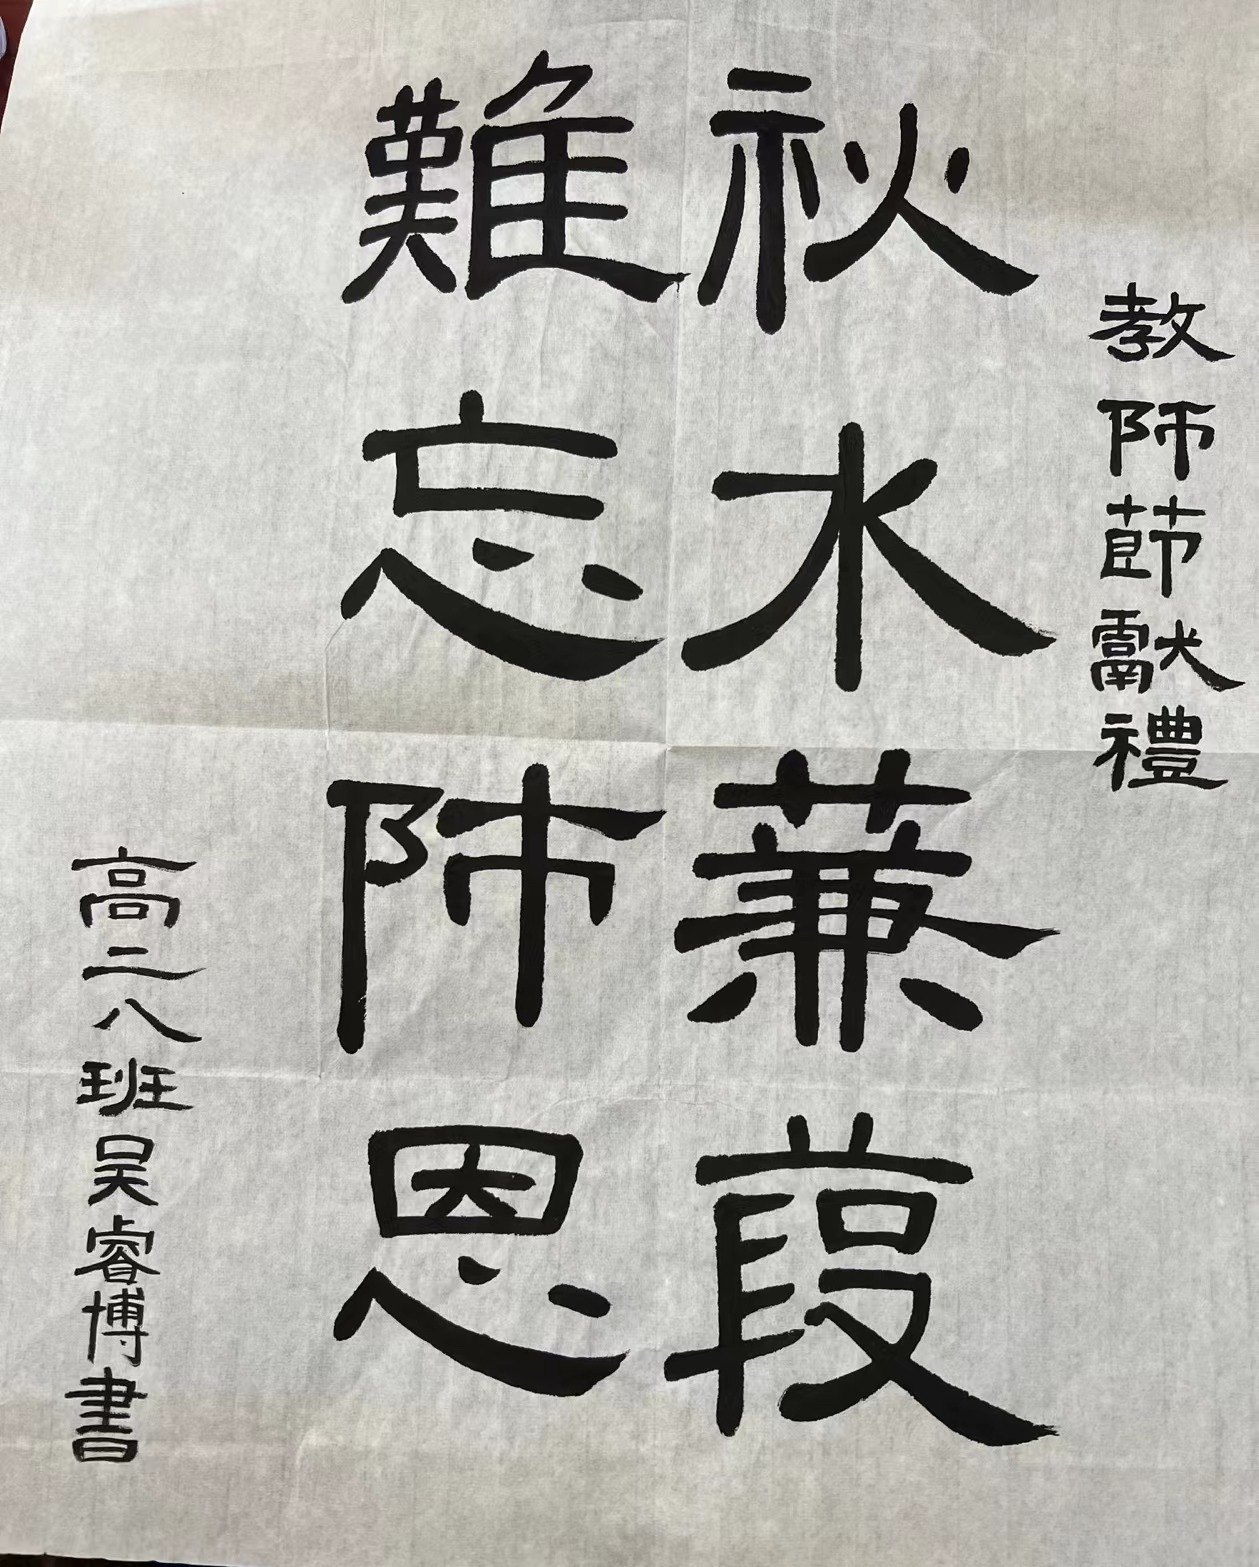 教師節獻禮
秋水蒹葭
難忘師恩
高二八班吴睿博書